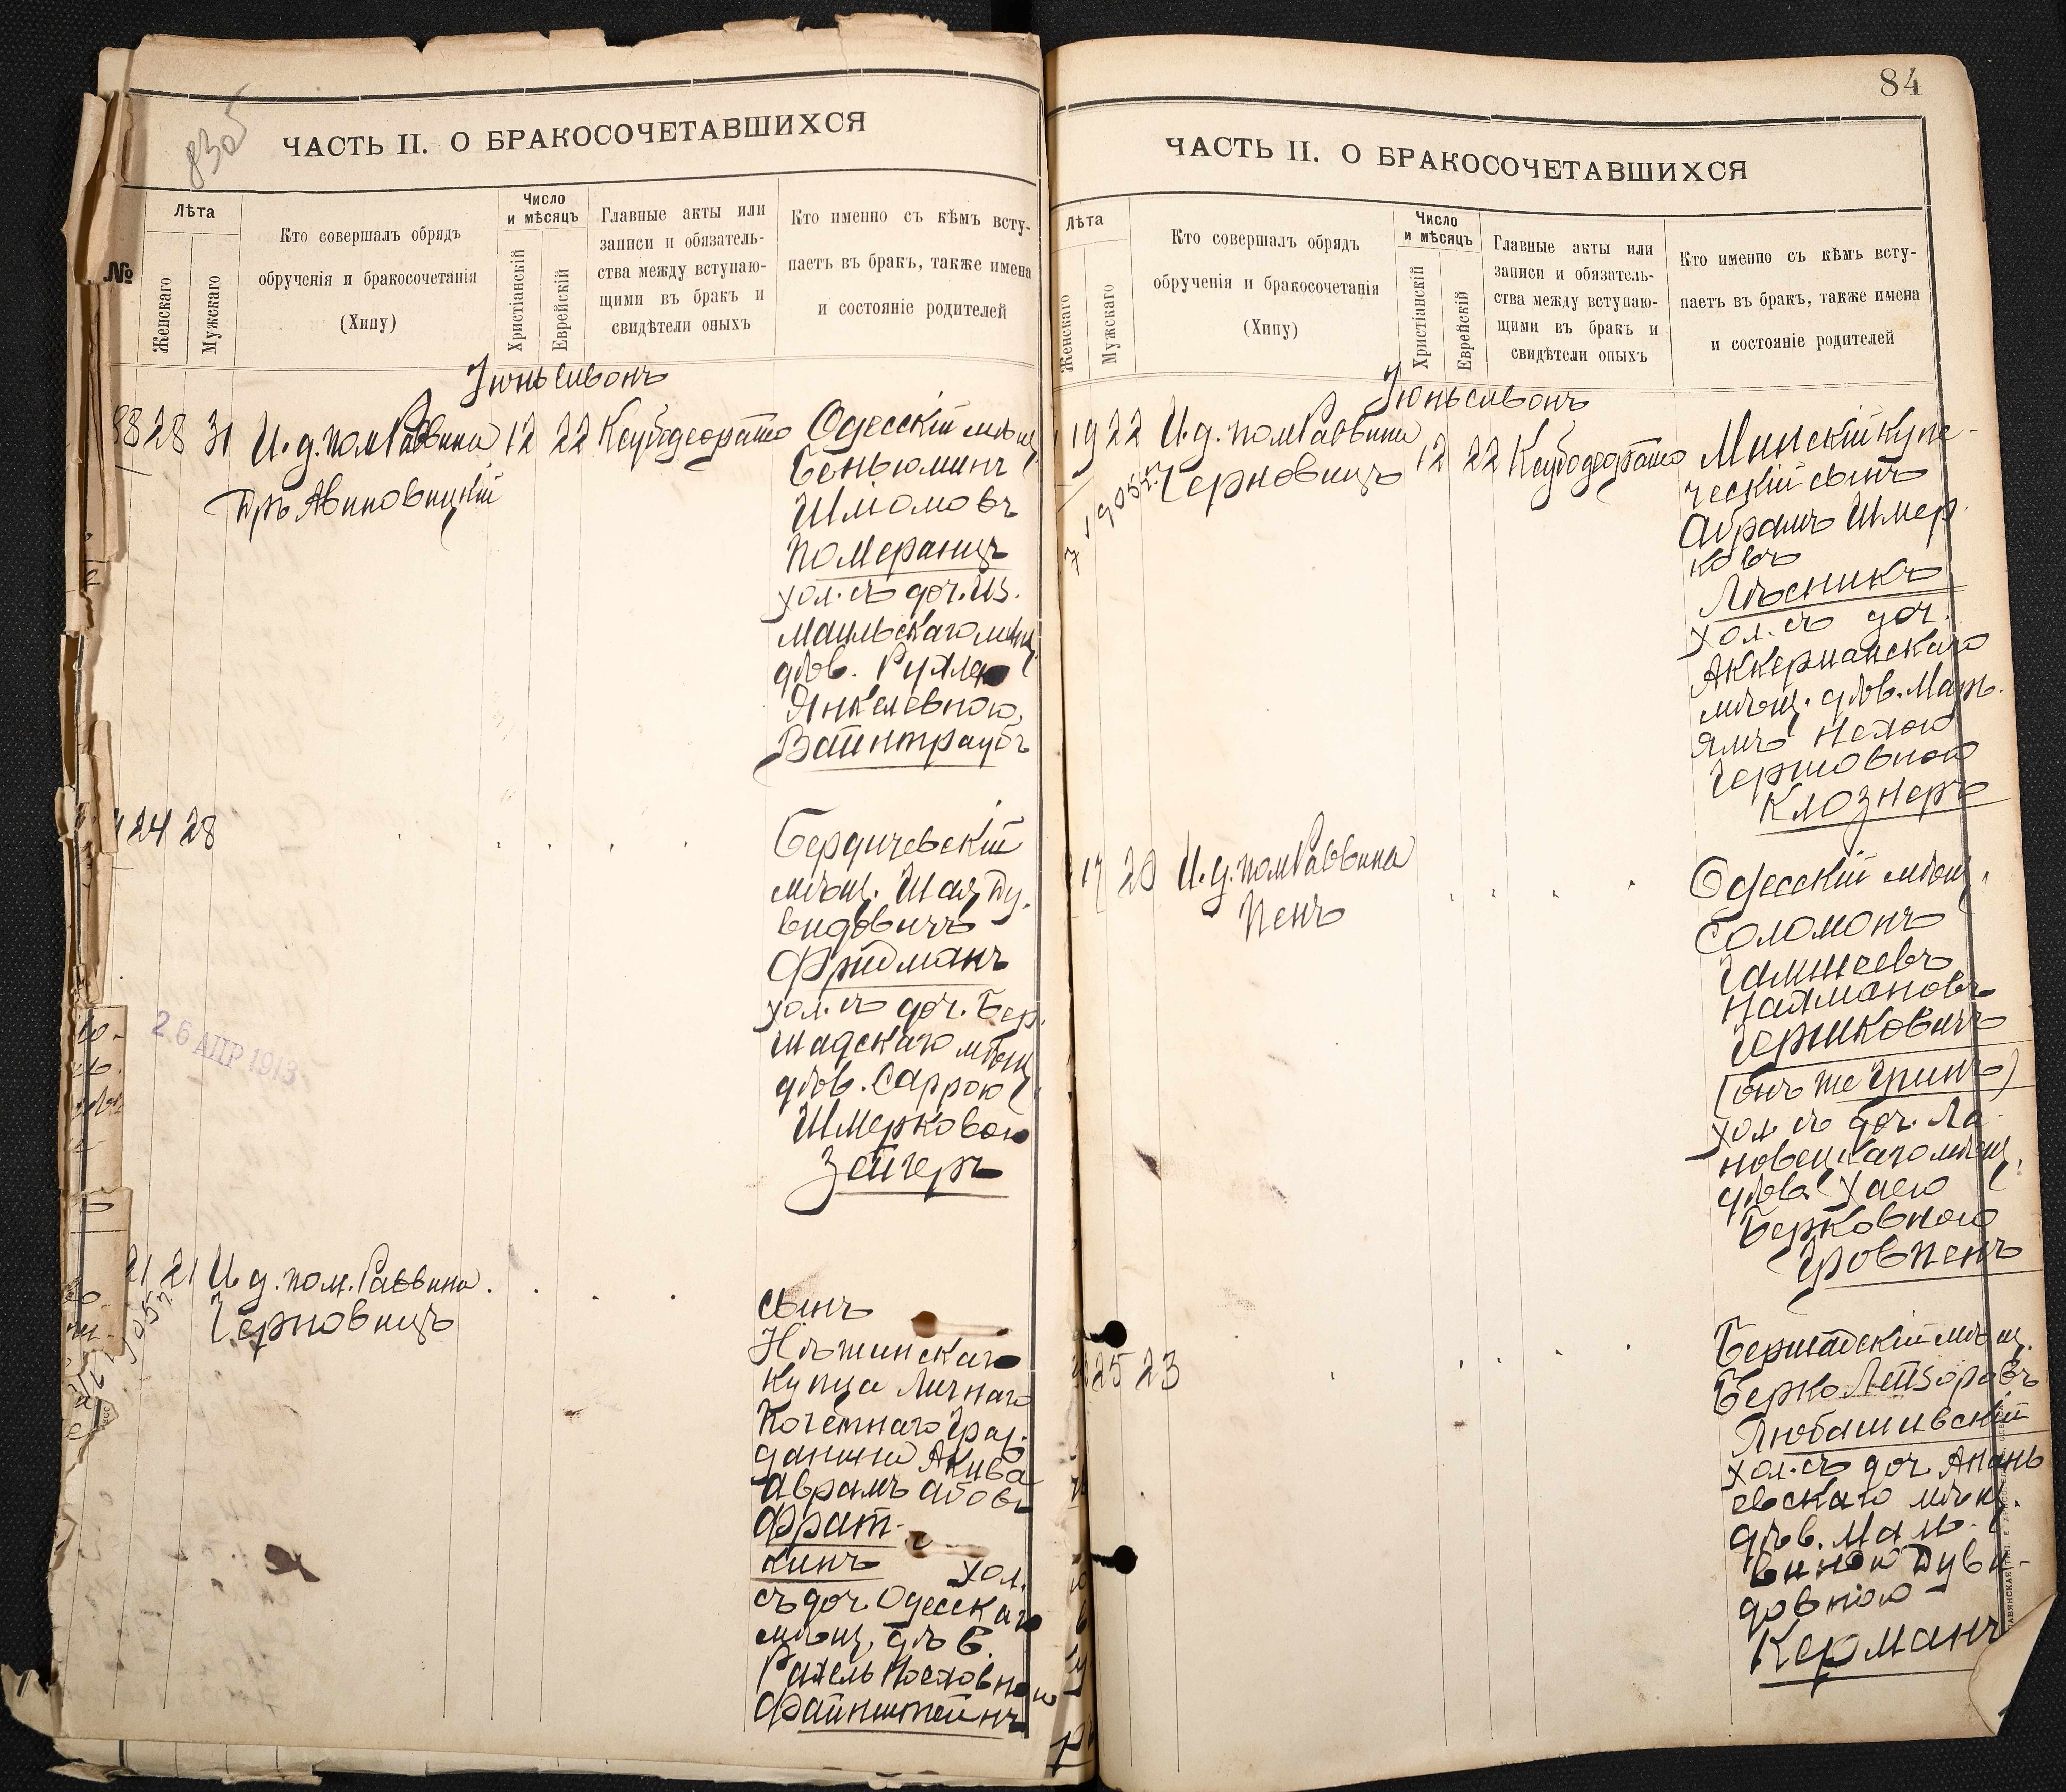 83об
ЧАСТЬ II. О БРАКОСОЧЕТАВШИХСЯ
№
Лѣта
Женскаго
Мужскаго
Кто совершалъ обрядъ
обрученія и бракосочетанія
(Хипу)
Число
и мѣсяцъ
Христіанскій
Еврейскій
Главные акты или
записи и обязатель-
ства между вступаю-
щими въ бракъ и
свидѣтели оныхъ
Кто именно съ кѣмъ всту-
паетъ въ бракъ, также имена
и состояніе родителей
Іюнь Сивонъ
88 28 31 И. д. пом Раввина 12 22
Дръ Авиновицкій
Одесскій мѣщ.
Беньюминъ
Шлiомовъ
Померанцъ
хол. съ доч. Из.
маильскаго мѣщ.
дѣв. Рухлею
Янкелевною
Вайнтраубъ
24 28
Бердичевскій
мѣщ. Шая Ду.
видовичъ
Фридманъ
хол. съ доч. Бер.
шадскаго мѣщ
дѣв. Саррою
Шмерковою
Зейгеръ
26 АПР 1913
21 21 И д. пом. Раввина
Черновицъ
сынъ
Нѣжинскаго
купца Личнаго
Почетнаго Граж.
данина Акива
Аврамъ Абовъ
Фрат-
кинъ хол.
съ доч. Одесскаго
мѣщ. дѣв.
Рахель Носховною
Файнштейнъ
84
ЧАСТЬ II. О БРАКОСОЧЕТАВШИХСЯ
Лѣта
Женскаго
Мужскаго
Кто совершалъ обрядъ
обрученія и бракосочетанія
(Хипу)
Число
и мѣсяцъ
Христіанскій
Еврейскій
Главные акты или
записи и обязатель-
ства между вступаю-
щими въ бракъ и
свидѣтели оныхъ
Кто именно съ кѣмъ всту-
паетъ въ бракъ, также имена
и состояніе родителей
Іюнь Сивонъ
19 22 И. д. пом Раввина 12 22
Черновицъ
Минскій купе-
ческій сынъ
Абрамъ Шмер.
ковъ
Лѣсникъ
хол. съ доч.
Аккерманскаго
мѣщ. дѣв. Мар.
ямъ Нехою
Гершовною
Клознеръ
17 20 И. д. пом Раввина
Пенъ
Одесскій мѣщ.
Соломонъ
Нахмановъ
Гершковичъ
(онъ же Гринъ)
хол. съ доч. Ла
новецкаго мѣщ.
дѣва Хаею
Берковною
Гровпенъ
25 23
Бершадскій мѣщ.
Берко Лейзоровъ
Любашивскій
хол. съ доч Анань
евскаго мѣщ.
дѣв. Маль.
виною Дуви-
довною
Керманъ